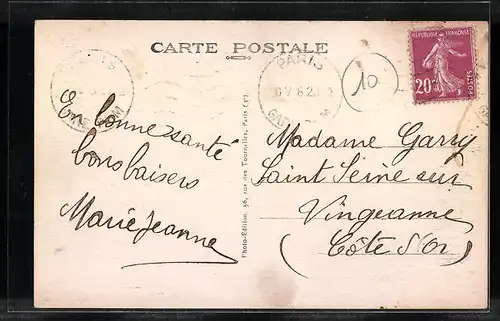 CARTE POSTALE
PARIS
10
REPUBLIQUE FRANÇAISE
20c
POSTES
En bonne santé
bons baisers
Marie Jeanne
Photo-Edition, 56, rue des Tournelles, Paris (3e)
Madame Garry
Saint Seine sur
Vingeanne
(Côte d'Or)